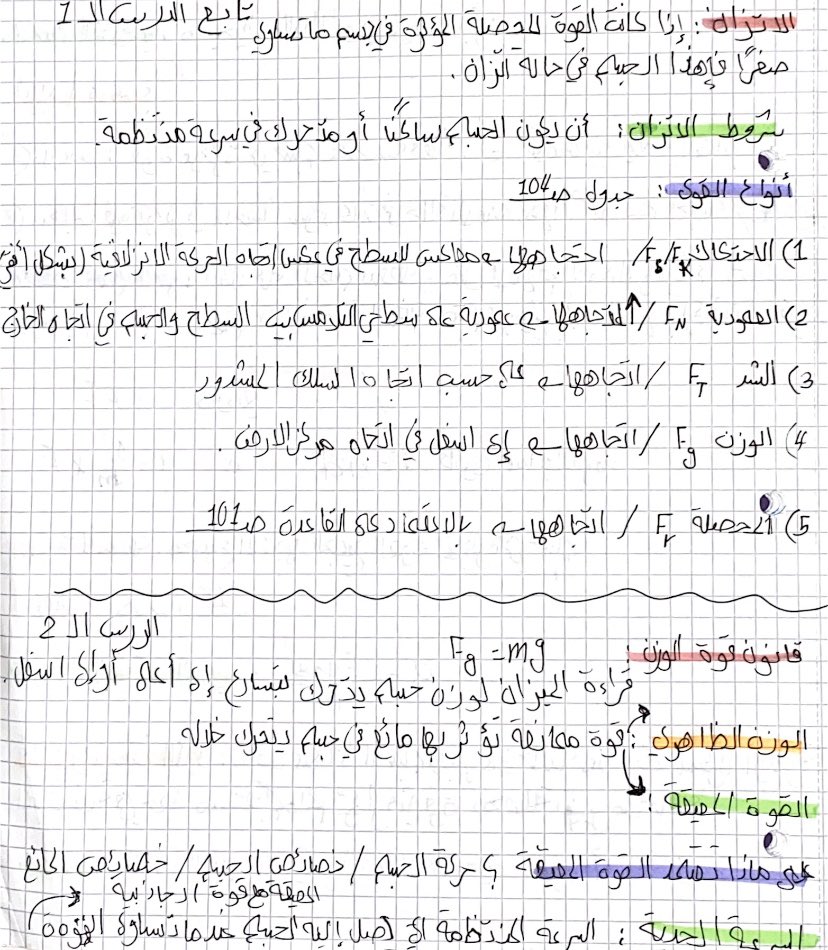 تابع الدرس الـ 1
الاتزان: إذا كانت القوة المحصلة المؤثرة في جسم ما تساوي
صفرًا فإن هذا الجسم في حالة اتزان.
شروط الاتزان: أن يكون الجسم ساكنًا أو متحرك في سرعة منتظمة.
أنواع القوى: جدول ص104
1) الاحتكاك Fs/Fk / اتجاهها معاكس للسطح في عكس اتجاه الحركة الانزلاقية (بشكل أفقي
2) العمودية FN / اتجاهها عمودية على سطحي التلامس بين السطح والجسم في اتجاه الخارج
3) الشد FT / اتجاهها على حسب اتجاه السلك المشدود
4) الوزن Fg / اتجاهها إلى اسفل في اتجاه مركز الارض.
5) المحصلة Fr / اتجاهها بالاعتماد على القاعدة ص101
الدرس الـ 2
قانون قوة الوزن: Fg = mg
قراءة الميزان لوزن جسم يتحرك بتسارع إلى أعلى أو إلى اسفل.
الوزن الظاهري: قوة ممانعة تؤثر بها مائع في جسم يتحرك خلاله
القوة المعيقة:
على ماذا تعتمد القوة المعيقة؟ حركة الجسم / خصائص الجسم / خصائص المائع
المعيقة مع قوة الجاذبية
السرعة الحدية: السرعة المنتظمة التي يصل إليه الجسم عندما تتساوى القوة